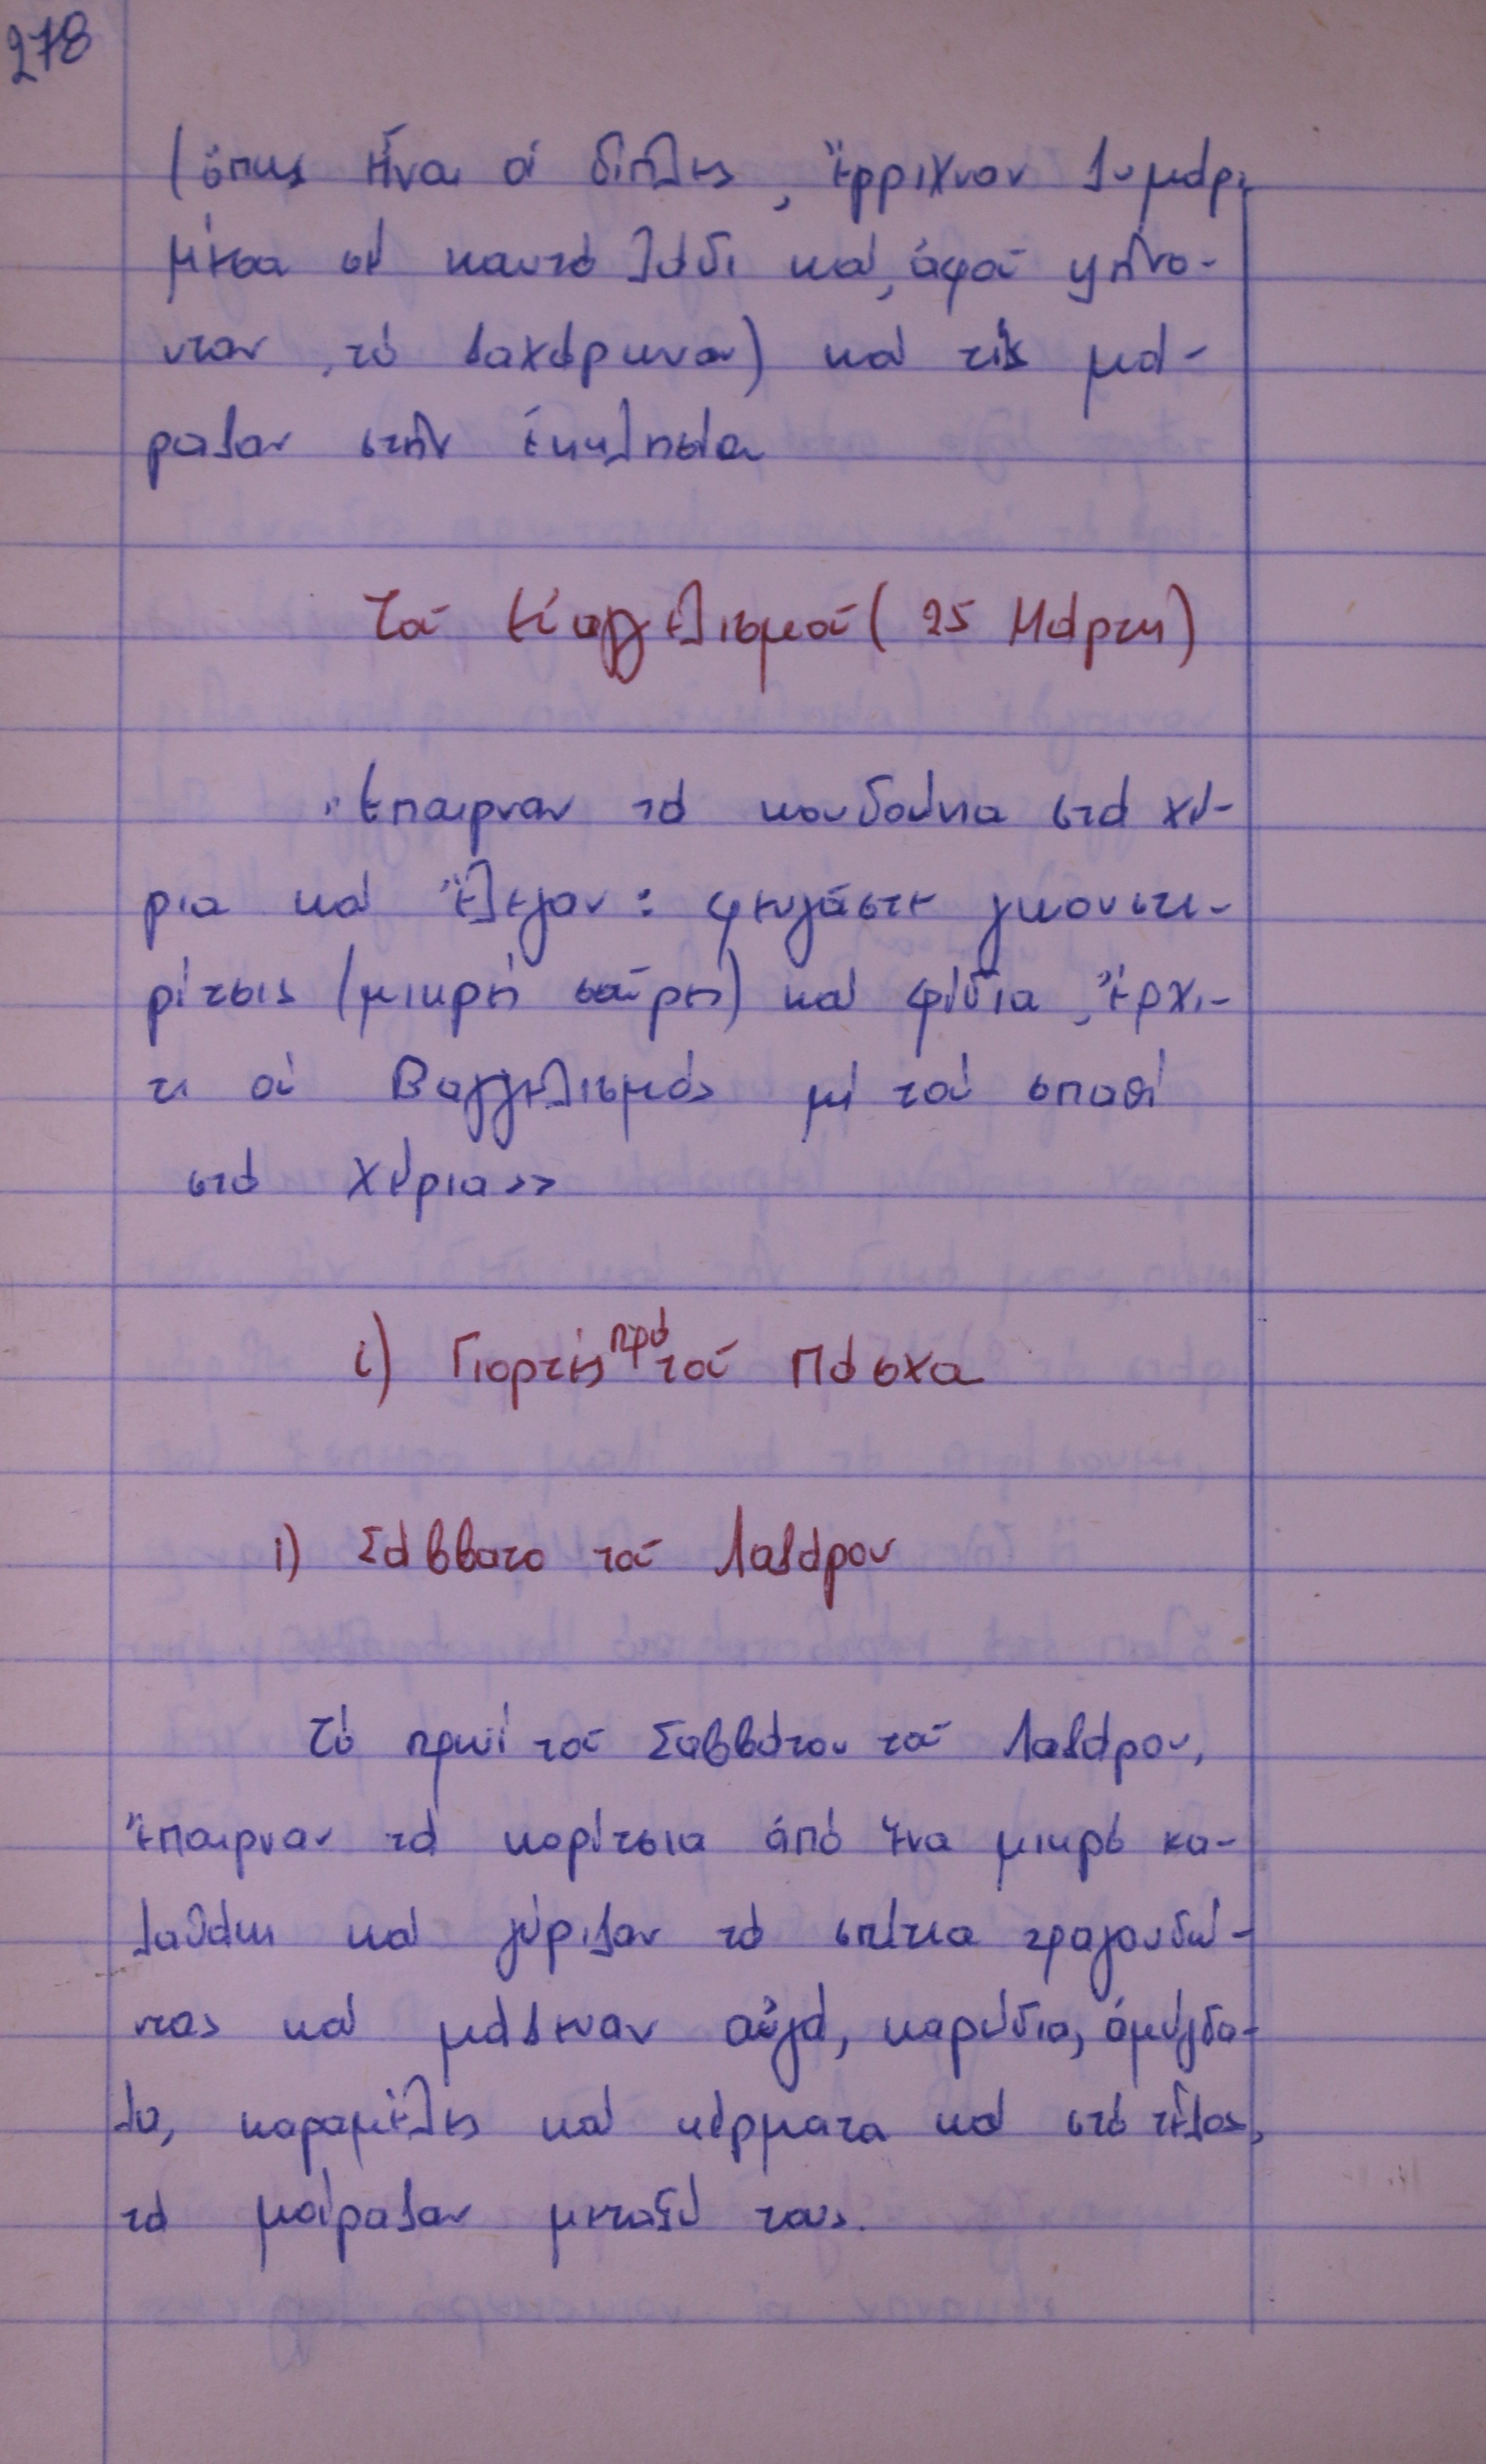 278
(ὅπως εἶναι οἱ δίπλες, ἔρριχναν ζυμάρι
μέσα σέ καυτό λάδι καί, ἀφοῦ ψήνο-
νταν, τό ζαχάρωναν) καί τίς μοί-
ραζαν στήν ἐκκλησία
Τοῦ Εὐαγγελισμοῦ (25 Μάρτη)
"Έπαιρναν τά κουδούνια στά χέ-
ρια καί ἔλεγαν: φευγᾶστε γκουστε-
ρίτσις (μικρή σαύρη) καί φίδια, ἔρχι-
τι οὐ Βαγγελισμός μέ τού σπαθί
στά χέρια»
ι) Γιορτές πρό τοῦ Πάσχα
i) Σάββατο τοῦ Λαζάρου
Τό πρωί τοῦ Σαββάτου τοῦ Λαζάρου,
ἔπαιρναν τά κορίτσια ἀπό ἕνα μικρό κα-
λαθάκι καί γύριζαν τά σπίτια τραγουδώ-
ντας καί μάζευαν αὐγά, καρύδια, ἀμύγδα-
λα, καραμέλες καί κέρματα καί στό τέλος,
τά μοίραζαν μεταξύ τους.